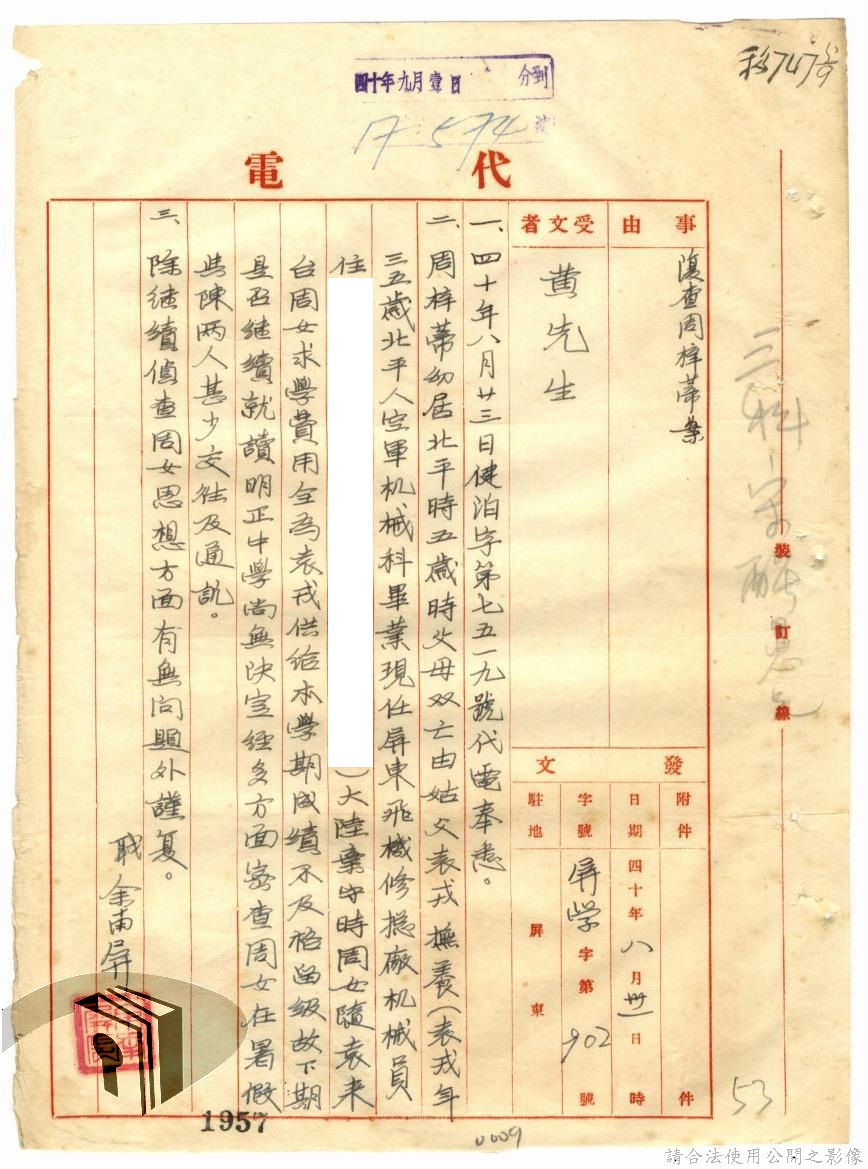 移747号
四十年九月壹日 分到
17574 號
代電
事由
復查周梓蒂案
受文者
黃先生
發文
附件
件
日期
四十年八月卅一日時
字號
屏學字第902號
駐地
屏東
一、四十年八月廿三日健泊字第七五一九號代電奉悉。
二、周梓蒂幼居北平時五歲時父母双亡由姑父袁戎撫養(袁戎年
三五歲北平人空軍机械科畢業現任屏東飛機修總廠机械員
住 )大陸棄守時周女隨袁来
台周女求學費用全為袁戎供給本學期成績不及格留級故下期
是否继續就讀明正中學尚無決定經多方面密查周女在暑假
與陳两人甚少交往及通訊。
三、除继續偵查周女思想方面有無问題外謹复。
職余南屏
裝訂線
53
1957
0009
請合法使用公開之影像